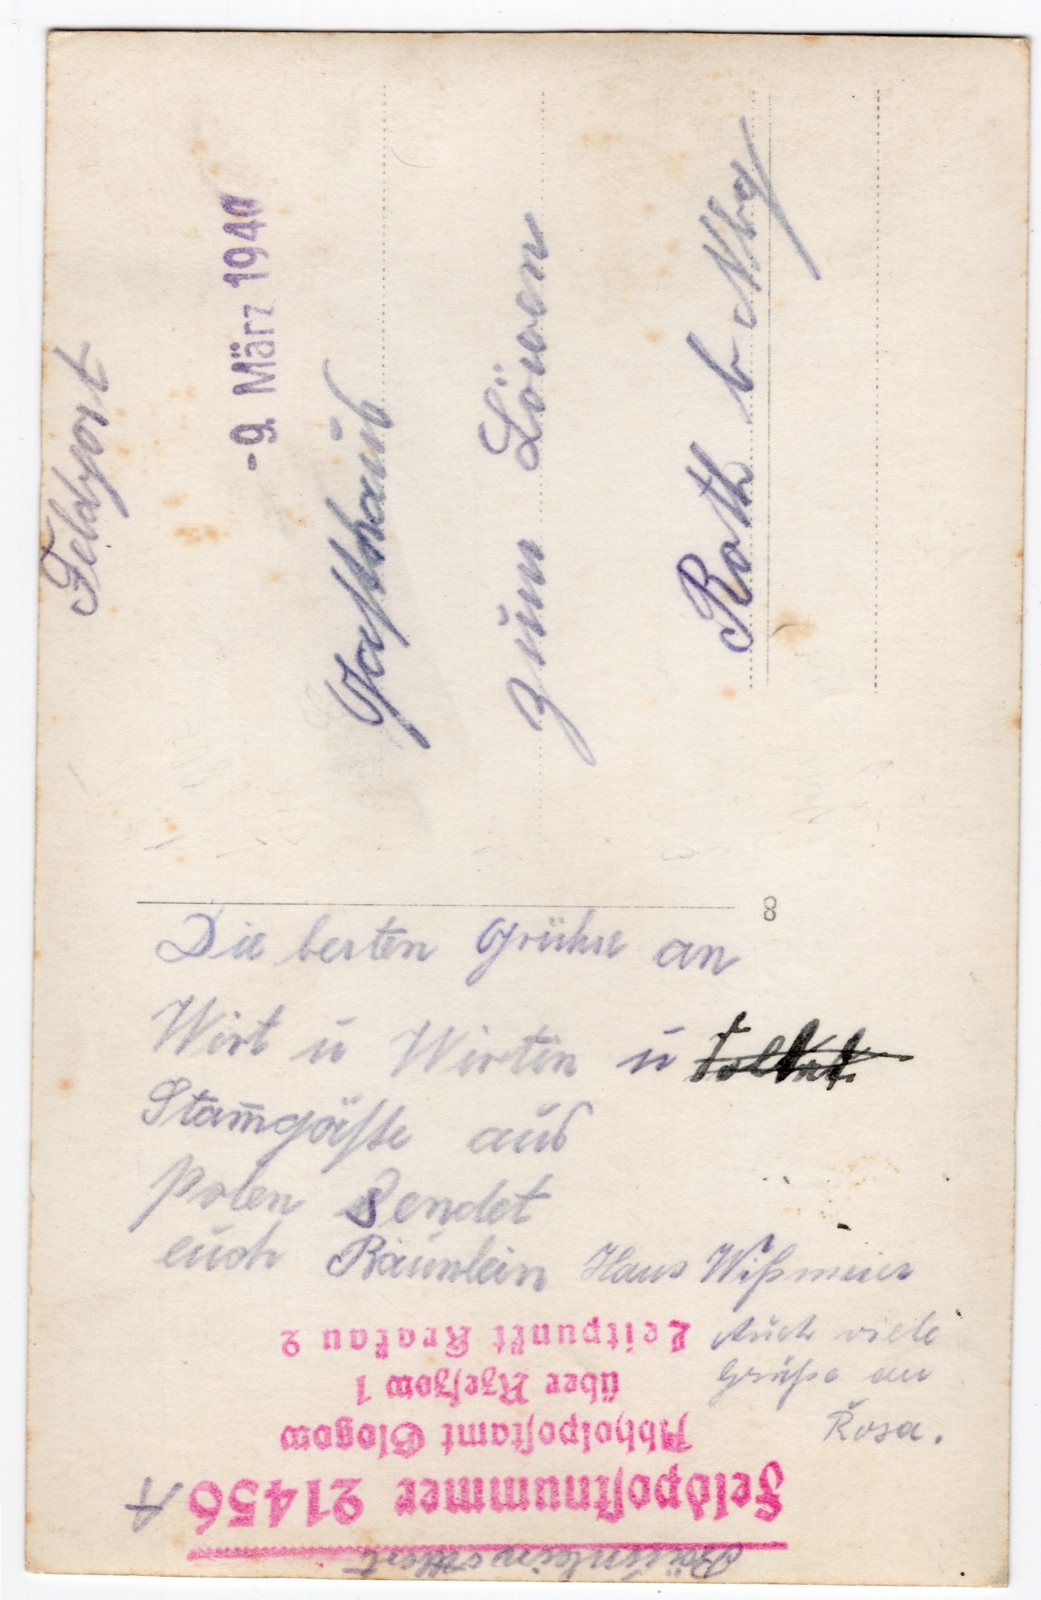 Feldpost
-9. März 1940
Gasthaus
zum Löwen
Roth b Nbg
8
Die besten Grühse an
Wirt u Wirtin u
Stam̅gäste aus
Polen Sendet
euch Bäunlein Hans Wißmeier
Auch viele
Grüße an
Rosa.
Feldpostnummer 21456 A
Abholpostamt Glogow
über Rzeszow 1
Leitpunkt Krakau 2